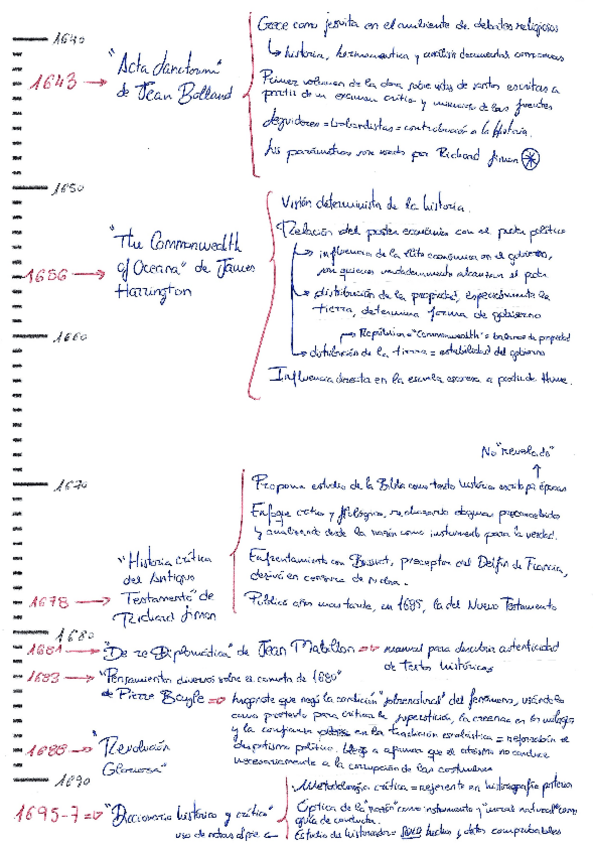 1640
1643 →
"Acta Sanctorum"
de Jean Bolland
Crece como jesuita en el ambiente de debates religiosos
↳ historia, hermenéutica y análisis documental
Primer volumen de la obra sobre vidas de santos escritas a
partir de un examen crítico y minucioso de las fuentes
Seguidores = bollandistas = contribución a la Historia.
Sus parámetros son usados por Richard Simon
1650
1656 →
"The Commonwealth
of Oceana" de James
Harrington
Visión determinista de la historia.
Relación del poder económico con el poder político
↳ influencia de la élite económica en el gobierno,
son quienes verdaderamente alcanzan el poder
↳ distribución de la propiedad, especialmente la
tierra, determina forma de gobierno
↳ República = "Commonwealth" = de propiedad
↳ distribución de la tierra = estabilidad del gobierno
Influencia directa en la escuela escocesa a partir de Hume.
1660
1670
No "revelado"
↑
Propone estudio de la Biblia como texto histórico escrito por épocas
Enfoque crítico y filológico, rechazando dogmas preconcebidos
y analizando desde la razón como instrumento para la verdad.
Enfrentamiento con Bossuet, preceptor del Delfín de Francia,
deriva en censura de su obra.
Publicó años más tarde, en 1689, la del Nuevo Testamento
1678 →
"Historia crítica
del Antiguo
Testamento" de
Richard Simon
1680
1681 → "De re Diplomática" de Jean Mabillon ⇒ manual para descubrir autenticidad
de textos históricos
1683 → "Pensamientos diversos sobre el cometa de 1680"
de Pierre Bayle ⇒ hugonote que negó la condición "sobrenatural" del fenómeno, usándolo
como pretexto para criticar la superstición, la creencia en los milagros
y la confianza en la tradición escolástica = reforzación el
despotismo político. Llegó a afirmar que el ateísmo no conduce
necesariamente a la corrupción de las costumbres
1688 → "Revolución
Gloriosa"
1690
1695-7 ⇒ "Diccionario histórico y crítico"
uso de notas al pie
Metodología crítica = referente en historiografía posterior
Óptica de la "razón" como instrumento y "moral natural" como
guía de conducta.
Estudio del historiador = SOLO hechos y datos comprobables